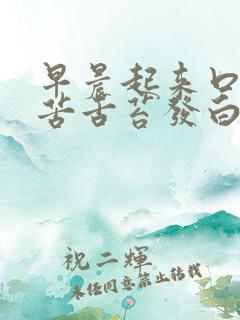 早晨起来口
苦舌苔發白
祝二輝
未经同意禁止转载